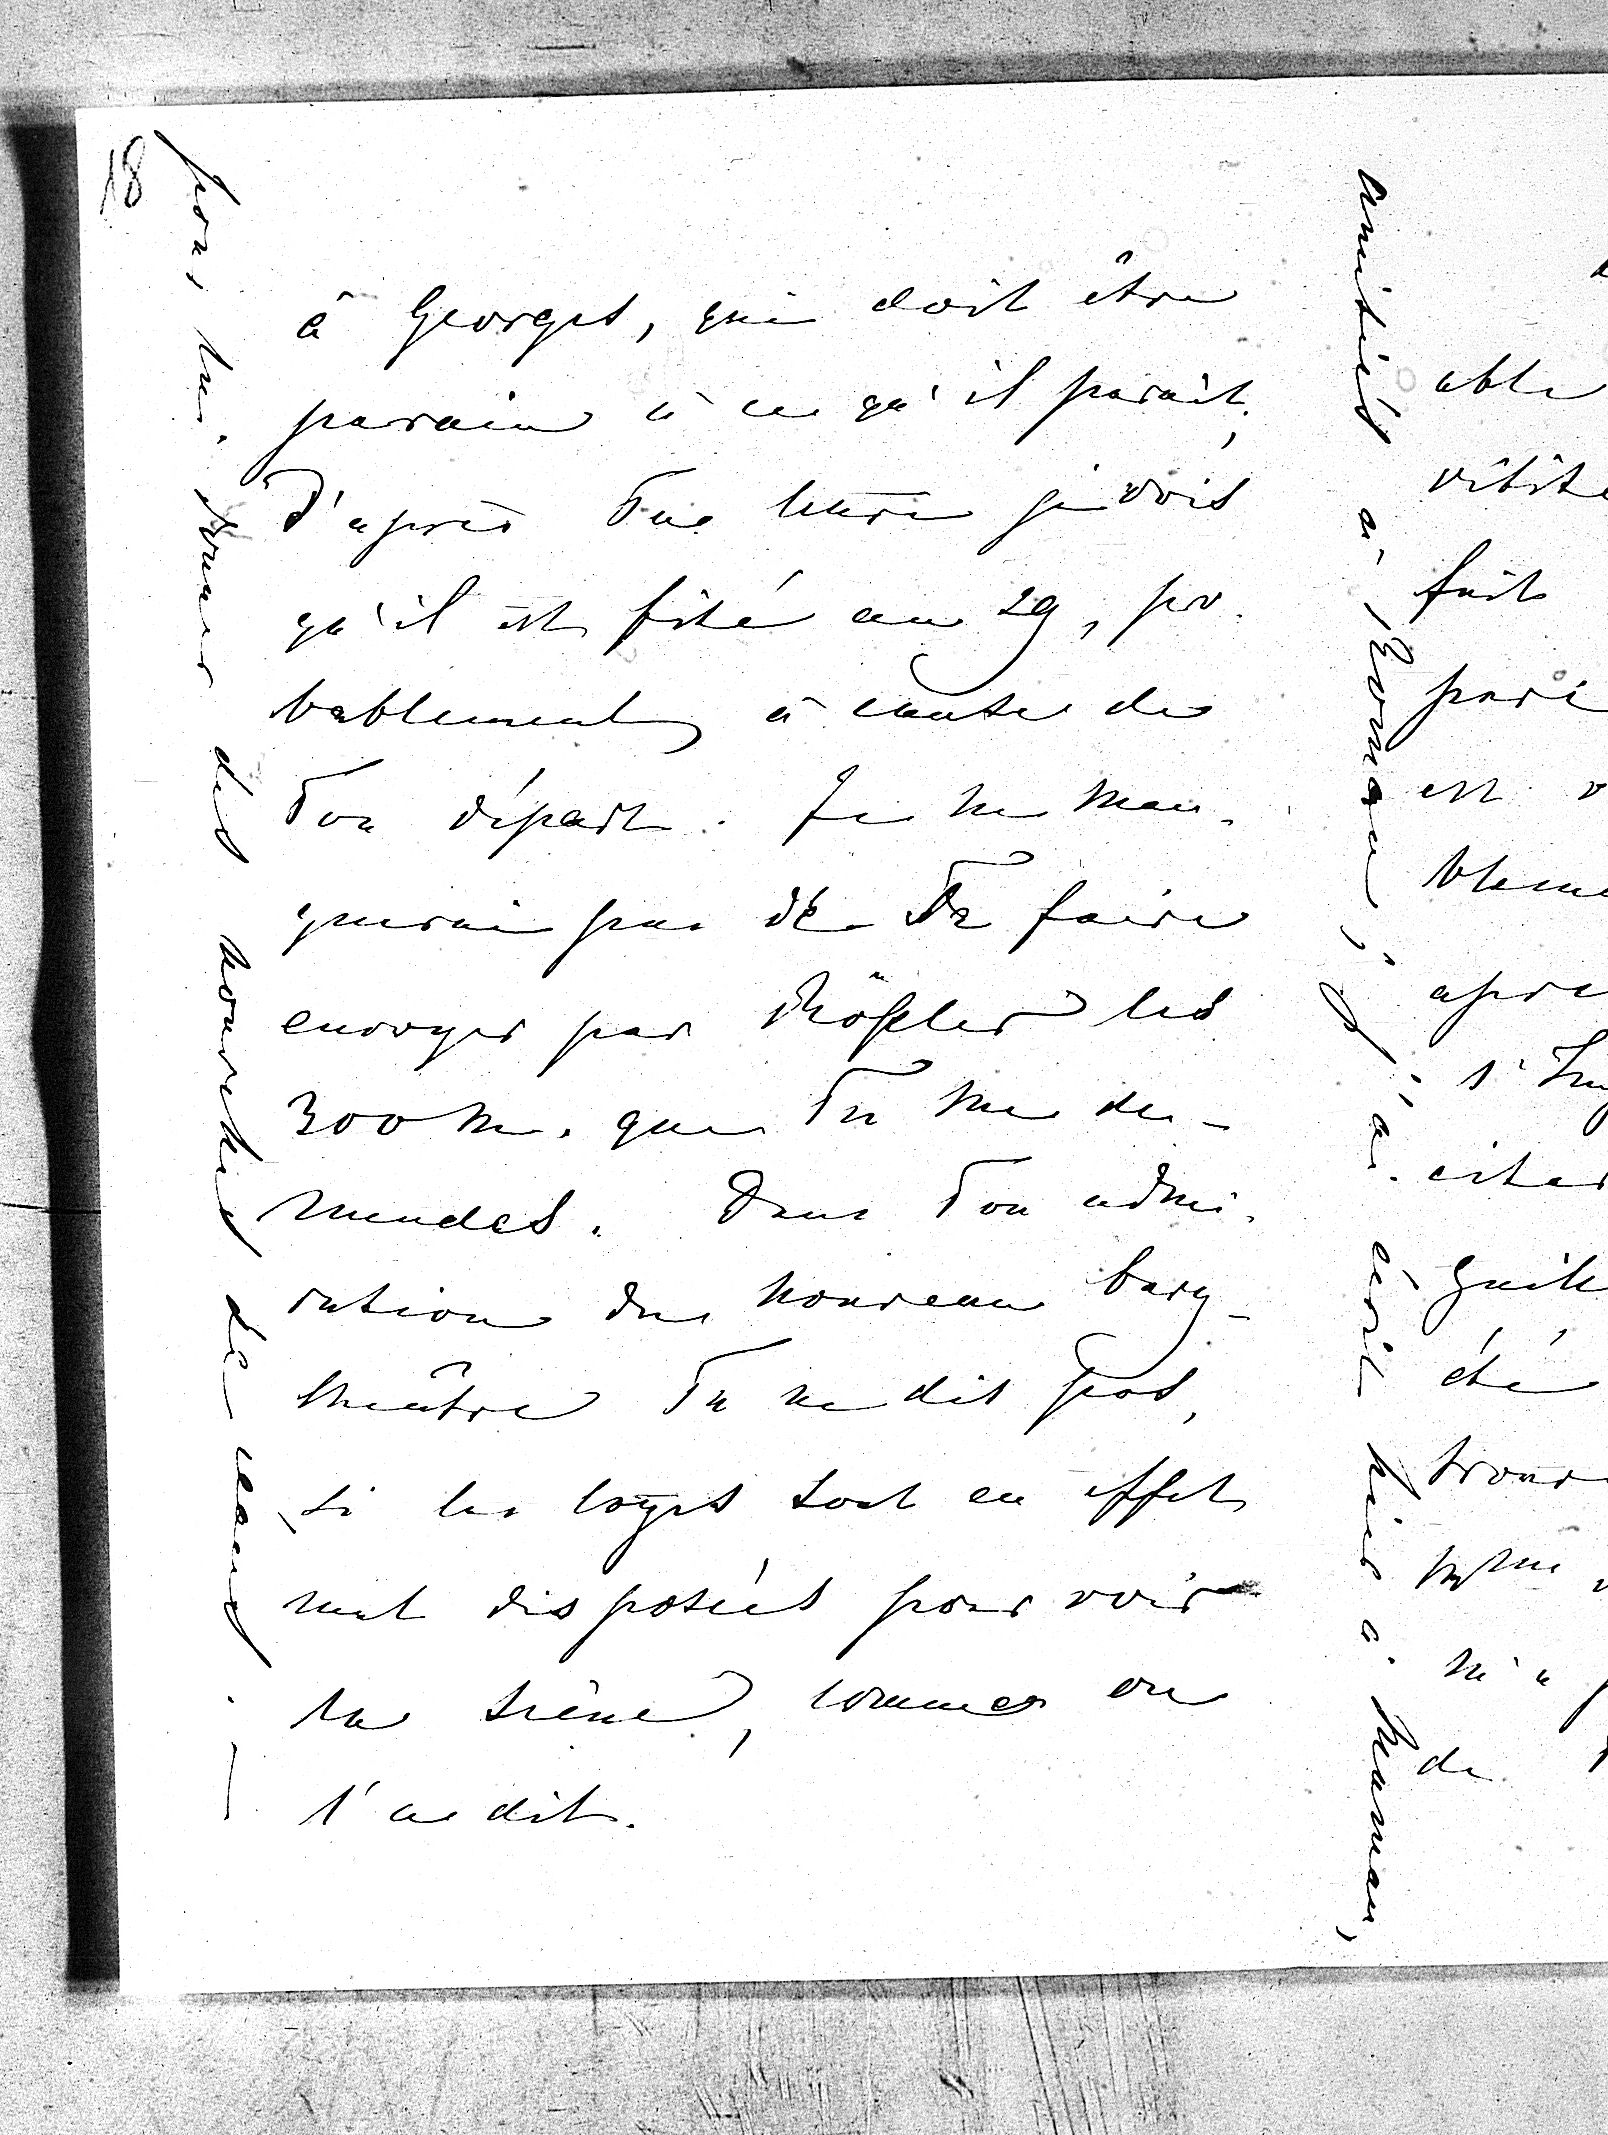 18
à Georges, qui doit être
parain à ce qu'il parait,
d'après Ta lettre je vois
qu'il est fixé au 29, pro-
bablement à cause de
Ton départ. Je ne man-
querai pas de Te faire
envoyer par Rößler les
300 M. que Tu me de-
mandes. Dans Ton admi-
ration du nouveau burg-
théâtre Tu ne dis pas,
si les loges sont en effet
mal disposées pour voir
la scène, comme on
l'a dit.
pour lui. des nouvelles de
amitiés à Roman, j'ai écrit hier à Maman,
able
visite
fait
pari
est
bleme
apre
citer
été
trouv
m'a
de